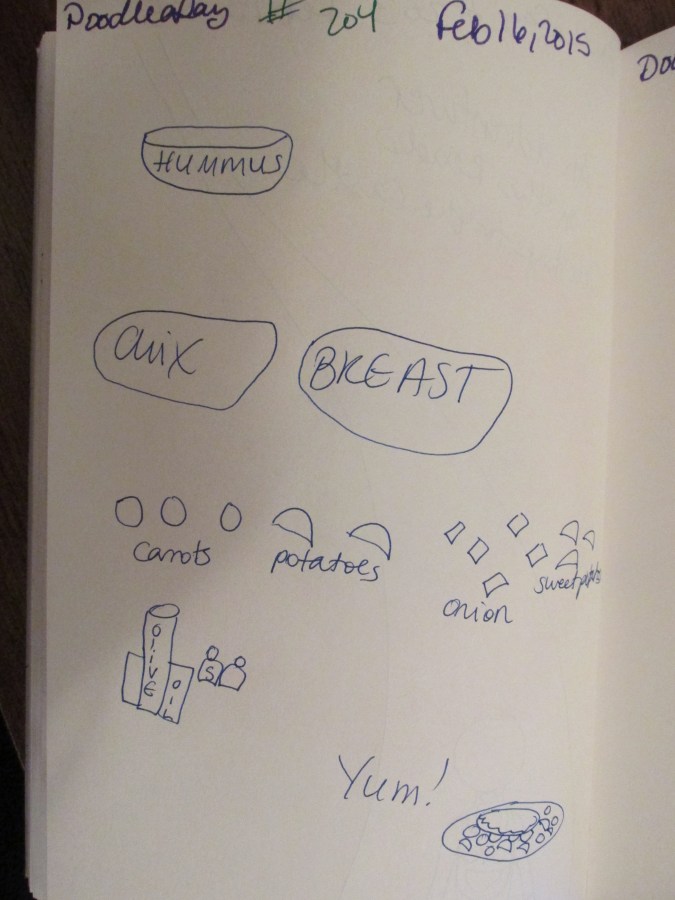 Doodleaday # 204 Feb 16, 2015
Doo
HUMMUS
chix BREAST
carrots potatoes onion sweet
OLIVE
OIL
S
Yum!